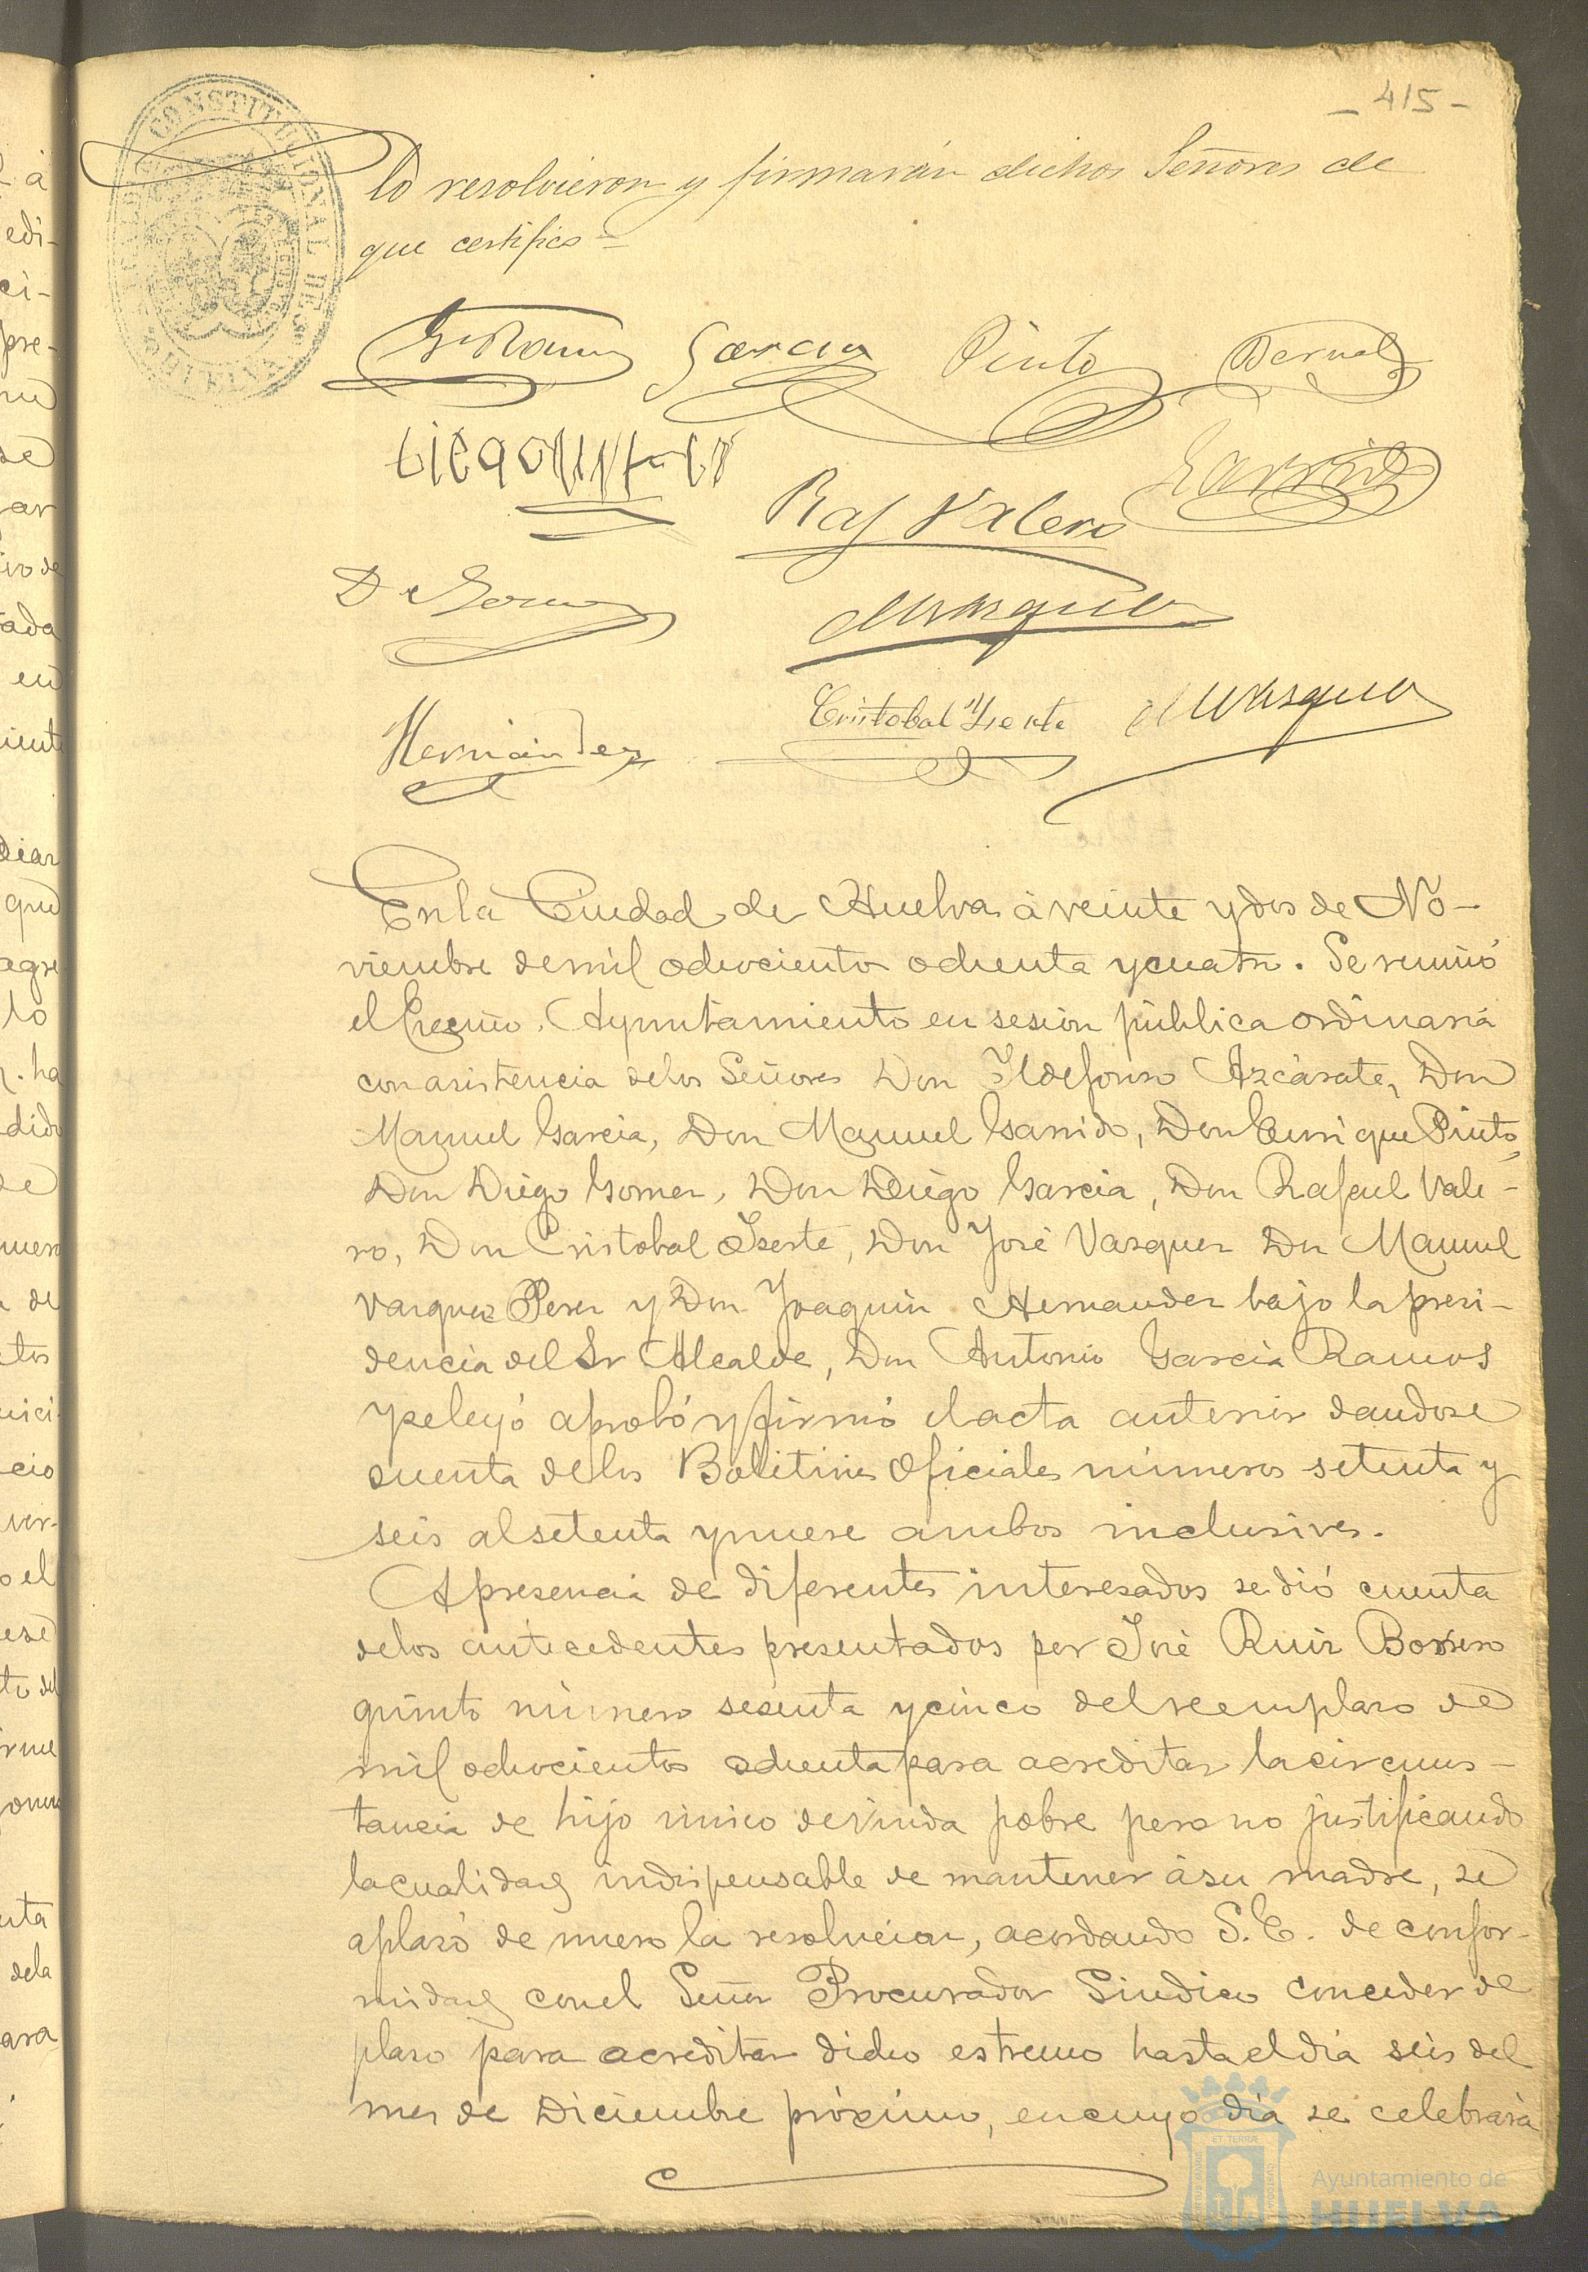 - 415 -
lo resolvieron y firmarán dichos Señores de
que certifico =
Garcia Pinto Bernal
Raf Valero Garrido
D Gomez
MVasquez
Hernández Cristobal Yserte MVasquez
En la Ciudad de Huelva á veinte y dos de No-
viembre de mil ochocientos ochenta y cuatro. Se reunió
el Excmo. Ayuntamiento en sesion pública ordinaria
con asistencia de los Señores Don Ildefonso Azcárate, Don
Manuel Garcia, Don Manuel Garrido, Don Enrique Pinto,
Don Diego Gomez, Don Diego Garcia, Don Rafael Vale-
ro, Don Cristobal Yserte, Don José Vazquez Don Manuel
Vazquez Perez y Don Joaquin Hernandez bajo la presi-
dencia del Sr Alcalde, Don Antonio Garcia Ramos
y se leyó aprobó y firmó el acta anterior dandose
cuenta de los Boletines Oficiales números setenta y
seis al setenta y nueve ambos inclusives.
A presencia de diferentes interesados se dió cuenta
de los antecedentes presentados por José Ruiz Borrero
quinto número sesenta y cinco del reemplazo de
mil ochocientos ochenta para acreditar la circuns-
tancia de hijo único de viuda pobre pero no justificando
la cualidad indispensable de mantener á su madre, se
aplazó de nuevo la resolucion, acordando S.E. de confor-
midad con el Señor Procurador Sindico conceder de
plazo para acreditar dicho estremo hasta el dia seis del
mes de Diciembre próximo, en cuyo dia se celebrará
Ayuntamiento de
HUELVA